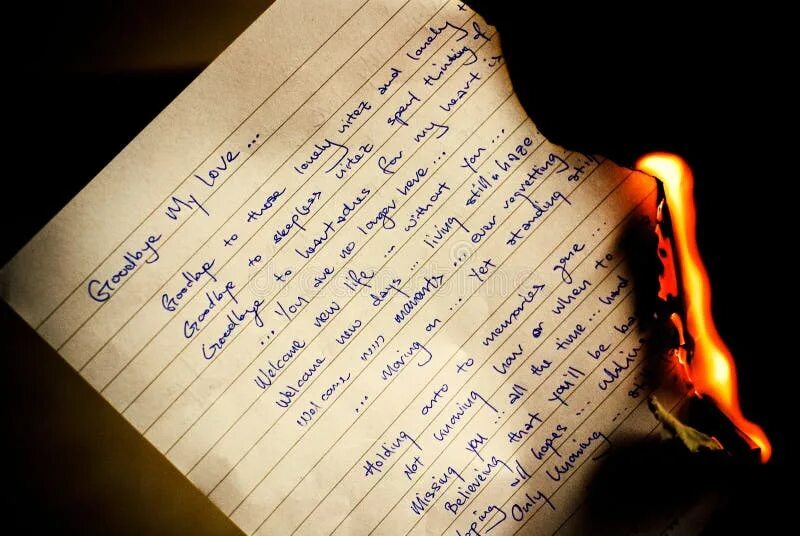 Goodbye My Love...
Goodbye to those lonely nitez and lonely
Goodbye to sleepless nitez spend thinking of
Goodbye to heartaches for my heart is
... You are no longer here...
Welcome new life ... without you...
Welcome new days... living still a haze...
Welcome new moments... ever regretting
... Moving on... yet standing still
Holding onto to memories gone...
Not knowing how or when to
Missing you... all the time... hard
Believeing that you'll be be
oping all hopes... wishing
Only knowing...
dreamstime